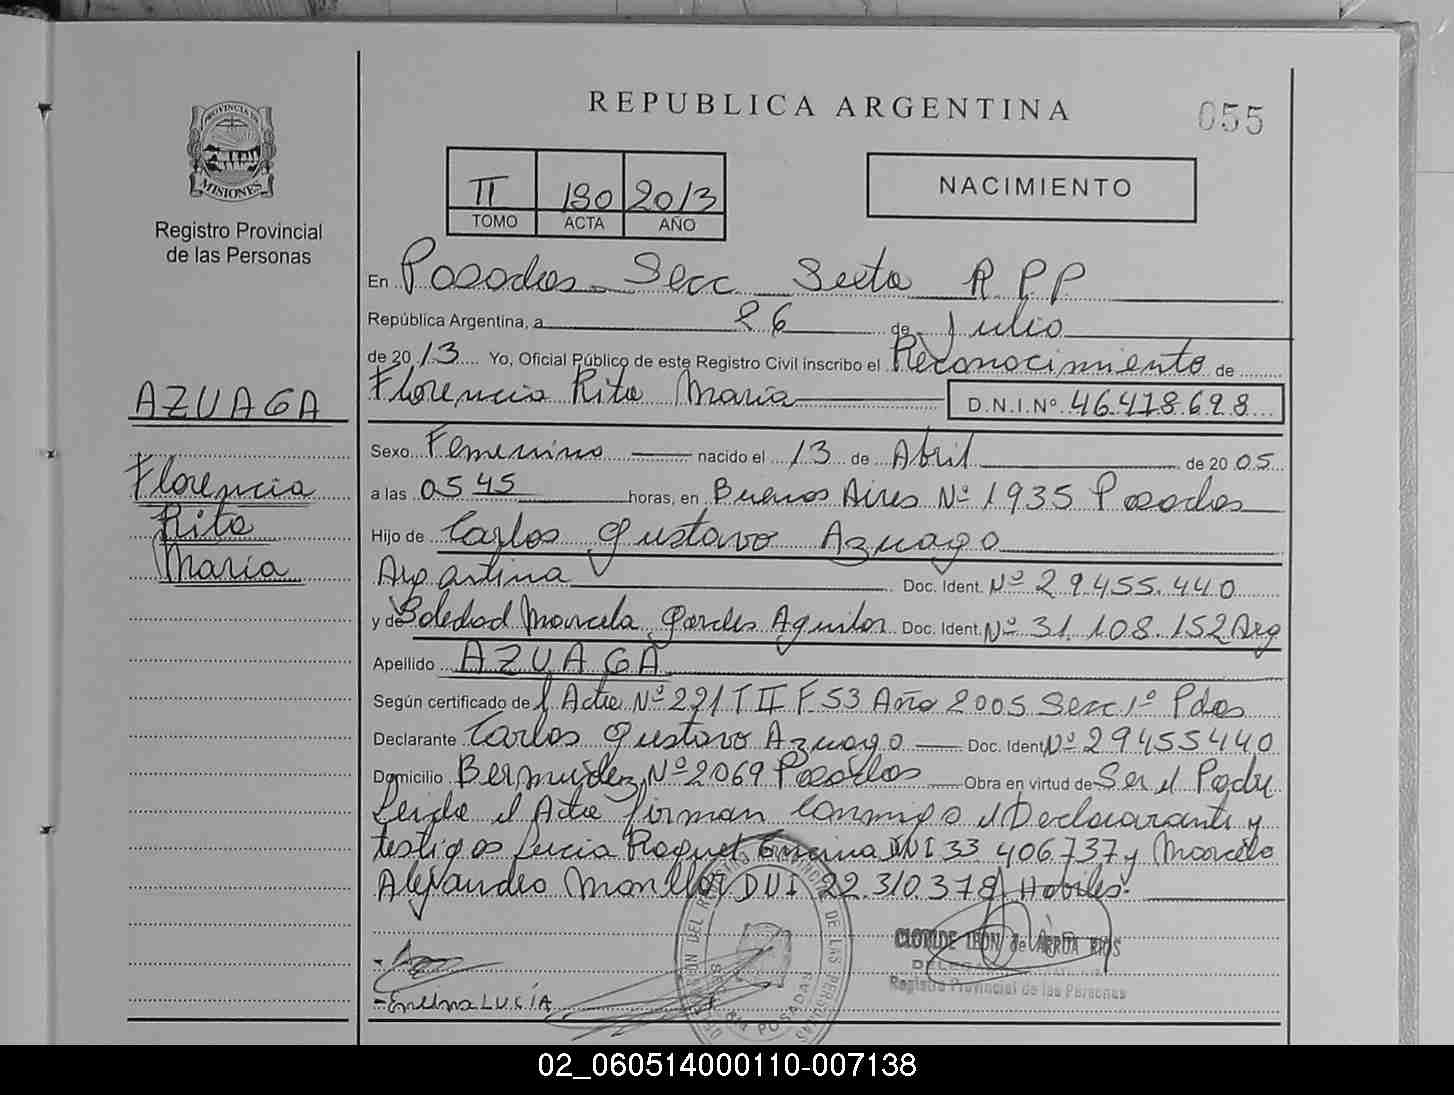 REPUBLICA ARGENTINA
055
PROVINCIA DE
MISIONES
Registro Provincial
de las Personas
II 190 2013
TOMO ACTA AÑO
NACIMIENTO
En Posadas Secc Sexta R P P
República Argentina, a 26 de Julio
de 2013 Yo, Oficial Público de este Registro Civil inscribo el Reconocimiento de
Florencia Rita Maria D.N.I.Nº 46.418.698
AZUAGA
Florencia
Rita
Maria
Sexo Femenino nacido el 13 de Abril de 2005
a las 05 45 horas, en Buenos Aires Nº 1935 Posadas
Hijo de Carlos Gustavo Azuaga
Argentina Doc. Ident. Nº 29455.440
y de Soledad Marcela Aguilar Doc. Ident. Nº 31.108.152 Arg
Apellido AZUAGA
Según certificado de l Acta Nº 221 T II F 53 Año 2005 Secc 1º Pdas
Declarante Carlos Gustavo Azuaga Doc. Ident Nº 29455440
Domicilio Bermudez Nº 2069 Posadas Obra en virtud de Ser el Padre
Leida el Acta firman Conmigo el Declarante y
testigos Lucia Raquel Encina DNI 33 406.737 y Marcelo
Alejandro DNI 22.310.378 Habiles.
CLOTILDE LEON de ARRUA RIOS
Registro Provincial de las Personas
LUCÍA
POSADAS
02_060514000110-007138